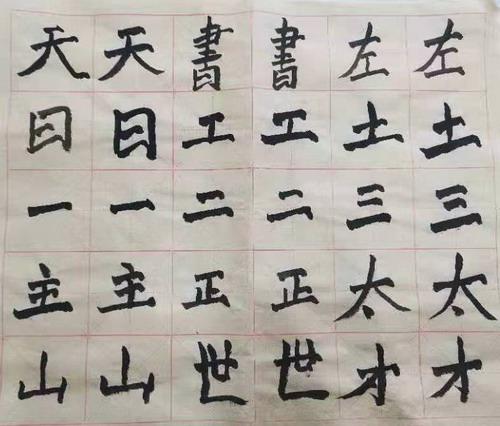 天天書書左左
曰曰工工土土
一一二二三三
主主正正太太
山山世世才才